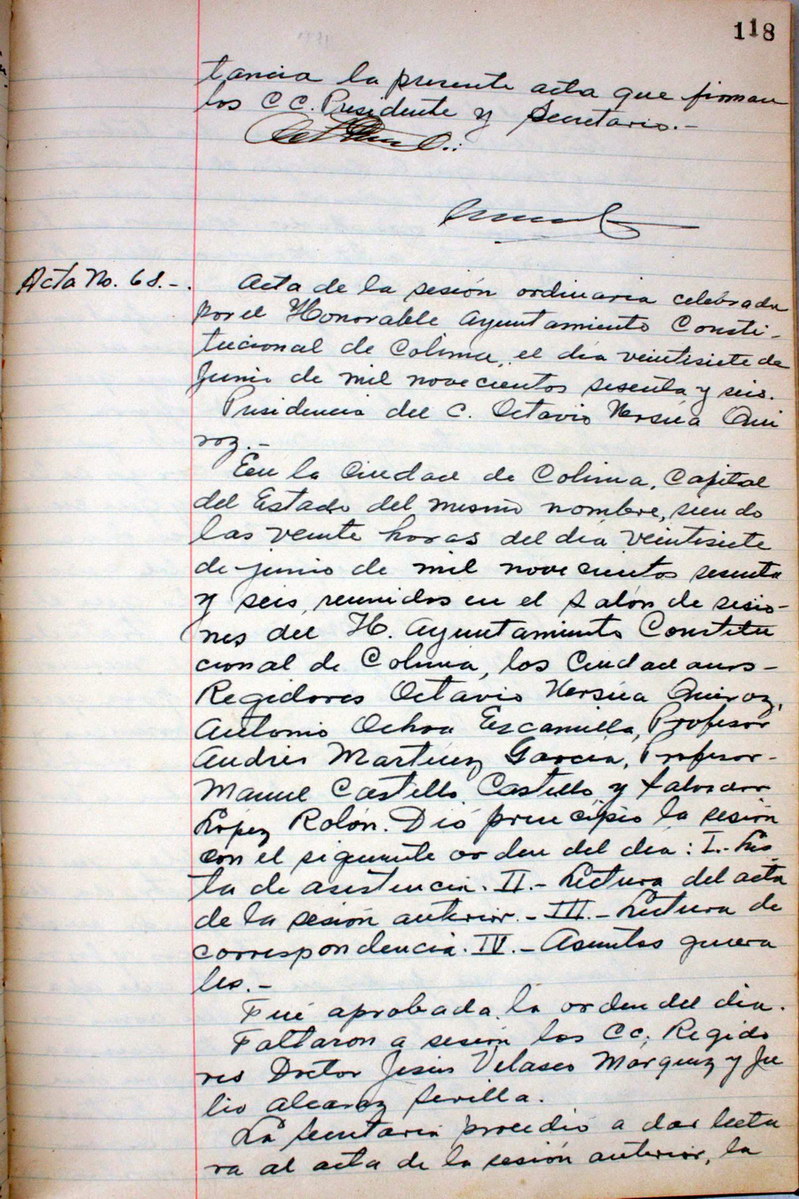 118
tancia la presente acta que firman
los C C. Presidente y Secretario.-
Acta No. 68.-.
Acta de la sesión ordinaria celebrada
por el Honorable Ayuntamiento Consti-
tucional de Colima, el día veintisiete de
Junio de mil novecientos sesenta y seis.
Presidencia del C. Octavio Ursúa Qui
roz.-
En la Ciudad de Colima, Capital
del Estado del mismo nombre, siendo
las veinte horas del día veintisiete
de junio de mil novecientos sesenta
y seis, reunidos en el Salón de sesio-
nes del H. Ayuntamiento Constitu
cional de Colima, los Ciudadanos-
Regidores Octavio Ursúa Quiroz,
Antonio Ochoa Escamilla, Profesor
Andrés Martínez García, Profesor-
Manuel Castillo Castillo y Salvador
López Rolón. Dió principio la sesión
con el siguiente orden del día: I.- Lis
ta de asistencia. II.- Lectura del acta
de la sesión anterior.- III.- Lectura de
correspondencia. IV.- Asuntos genera
les.-
Fué aprobada la orden del día.
Faltaron a sesión los CC. Regido
res Doctor Jesús Velasco Márquez y Ju
lio Alcaraz Sevilla.
La Secretaría procedió a dar lectu
ra al acta de la sesión anterior, la